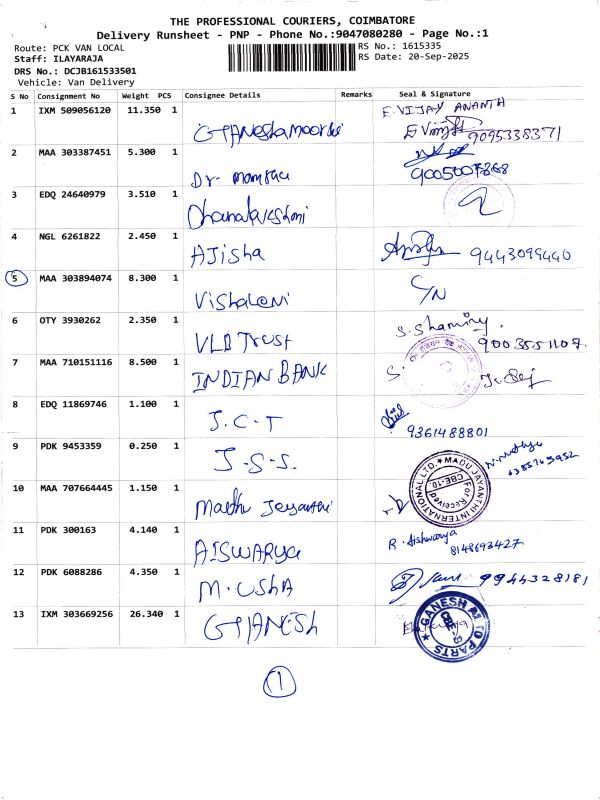 THE PROFESSIONAL COURIERS, COIMBATORE
Delivery Runsheet - PNP - Phone No.:9047080280 - Page No.:1
Route: PCK VAN LOCAL
RS No.: 1615335
Staff: ILAYARAJA
RS Date: 20-Sep-2025
DRS No.: DCJB161533501
Vehicle: Van Delivery
S No Consignment No Weight PCS Consignee Details Remarks Seal & Signature
1 IXM 509056120 11.350 1 E.VIJAY ANANTH
9095338371
2 MAA 303387451 5.300 1 Dr.
3 EDQ 24640979 3.510 1 Dhanalakshmi
4 NGL 6261822 2.450 1 AJisha 9443099440
5 MAA 303894074 8.300 1 C/N
6 OTY 3930262 2.350 1 VLB Trust S. Shaminy.
9003551107.
7 MAA 710151116 8.500 1 INDIAN BANK
8 EDQ 11869746 1.100 1 J.C.T
9361488801
9 PDK 9453359 0.250 1 J.S.S.
10 MAA 707664445 1.150 1 Madhu Jayanthi MADU JAYANTHI INTERNATIONAL LTD. For Received CBE-10.
11 PDK 300163 4.140 1 AISWARYA R. Aishwarya
8148693427
12 PDK 6088286 4.350 1 M.USHA 9944328181
13 IXM 303669256 26.340 1 GANESH GANESH AUTO PARTS
1